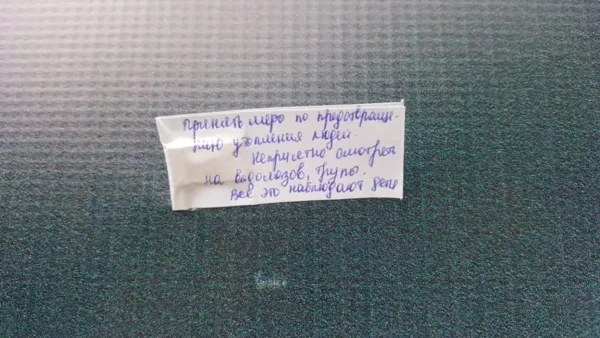 Принять меро по предотвраще-
нию утопления людей.
Неприятно смотреть
на водолазов, трупы.
Все это наблюдают дети